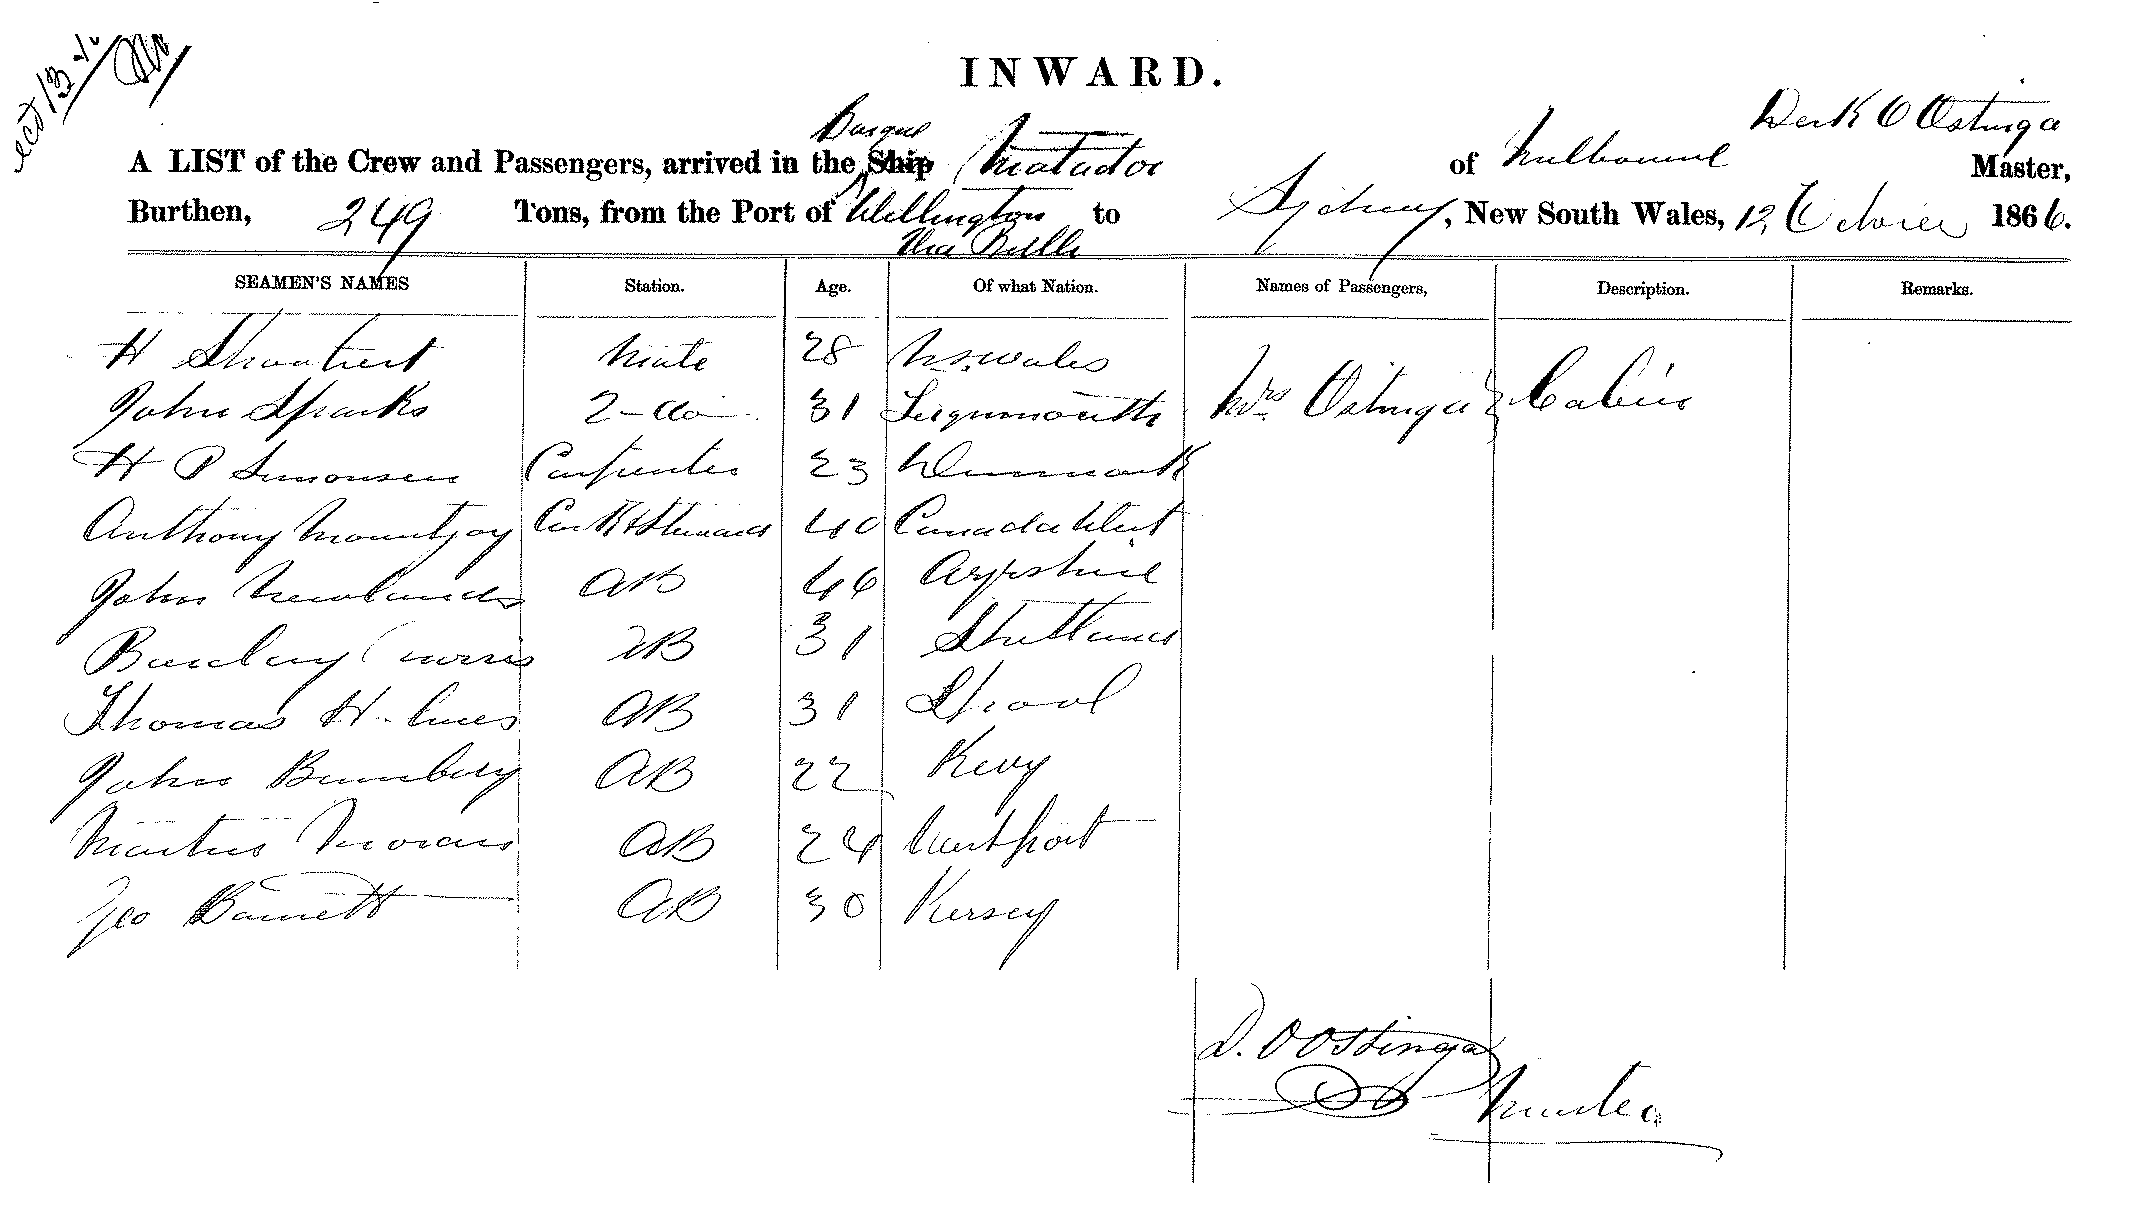 INWARD.
Barque
Derk O Ostinga
A LIST of the Crew and Passengers, arrived in the Ship Matador of Melbourne Master,
Burthen, 249 Tons, from the Port of Wellington to Sydney, New South Wales, 12 October 1866.
Via Bulli
SEAMEN'S NAMES Station. Age. Of what Nation. Names of Passengers, Description. Remarks.
H Mate 28 N.S. Wales
John Sparks 2-do 31 Teignmouth Mrs Ostinga Cabin
H P Simonsen Carpenter 23 Denmark
Anthony Mountjoy Cook & Steward 40 Canada West
John Newlands AB 46 Ayrshire
AB 31
Thomas Holmes AB 31 Lpool
John AB 22
Martin Moran AB 24 Westport
Geo Barnett AB 30 Kersey
D. Oostinga
Master